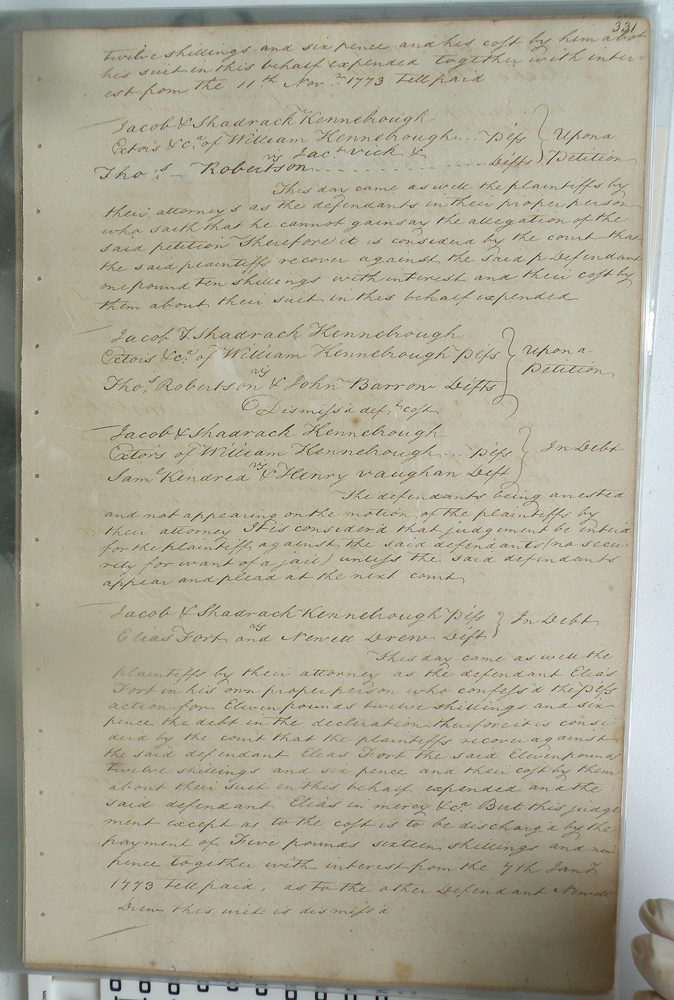 331
twelve shillings and six pence and his cost by him about
his suit in this behalf expended together with inter-
est from the 11th Novr. 1773 tell paid
Jacob & Shadrack Kennebrough
Extors &ca. of William Kennebrough... Ptfs } Upon a
vs Jact. Vick & Petition
Thos. Robertson Defts
This day came as well the plaintiffs by
their attorneys as the defendants in their proper person
who saith that he cannot gainsay the allegation of the
said petition Therefore it is considerd by the court that
the said plaintiffs recover against the said p Defendant
one pound ten shillings with interest and their cost by
them about their suit in this behalf expended
Jacob & Shadrack Kennebrough
Extors &ca. of William Kennebrough Ptfs } Upon a
vs Petition
Thos. Robertson & John Barrow Defts
Dismiss'd defts. cost
Jacob & Shadrack Kennebrough
Extors of William Kennebrough... Ptfs } In Debt
vs
Saml. Kindred & Henry Vaughan Deft
The defendants being arrested
and not appearing on the motion of the plaintiffs by
their attorney It is consider'd that judgement be enterd
for the plaintiff against the said defendants (no secu-
rity for want of a jail) unless the said defendants
appear and plead at the next court
Jacob & Shadrack Kennebrough Ptfs } In Debt
vs
Elias Fort and Newett Drew Deft
This day came as well the
plaintiffs by their attorney as the defendant Elias
Fort in his own proper person who confess'd the Ptfs
action for Eleven pounds twelve shillings and six
pence the debt in the declaration therefore it is consi-
derd by the court that the plaintiffs recover against
the said defendant Elias Fort the said Eleven pounds
twelve shillings and six pence and their cost by them
about their suit in this behalf expended and the
said defendant Elias in mercy &ca But this judge
ment except as to the cost is to be discharg'd by the
payment of Five pounds sixteen shillings and nine
pence together with interest from the 7th Jany.
1773 tell paid, as to the other Defendant Newett
Drew this writ is dismiss'd